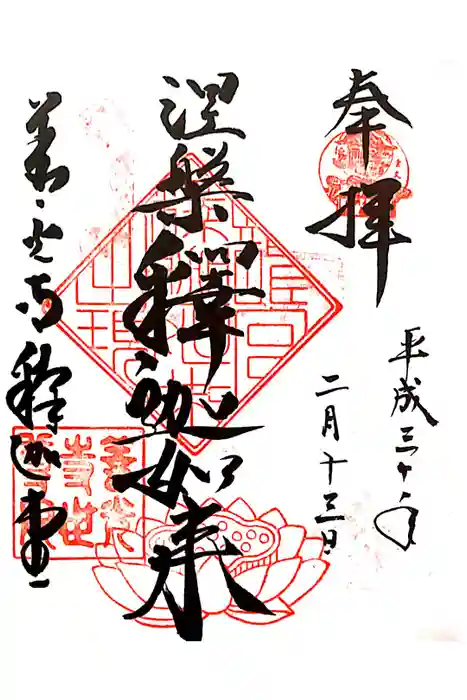 奉拝
平成三十年
二月十三日
涅槃釋迦如来
善光寺釋迦堂